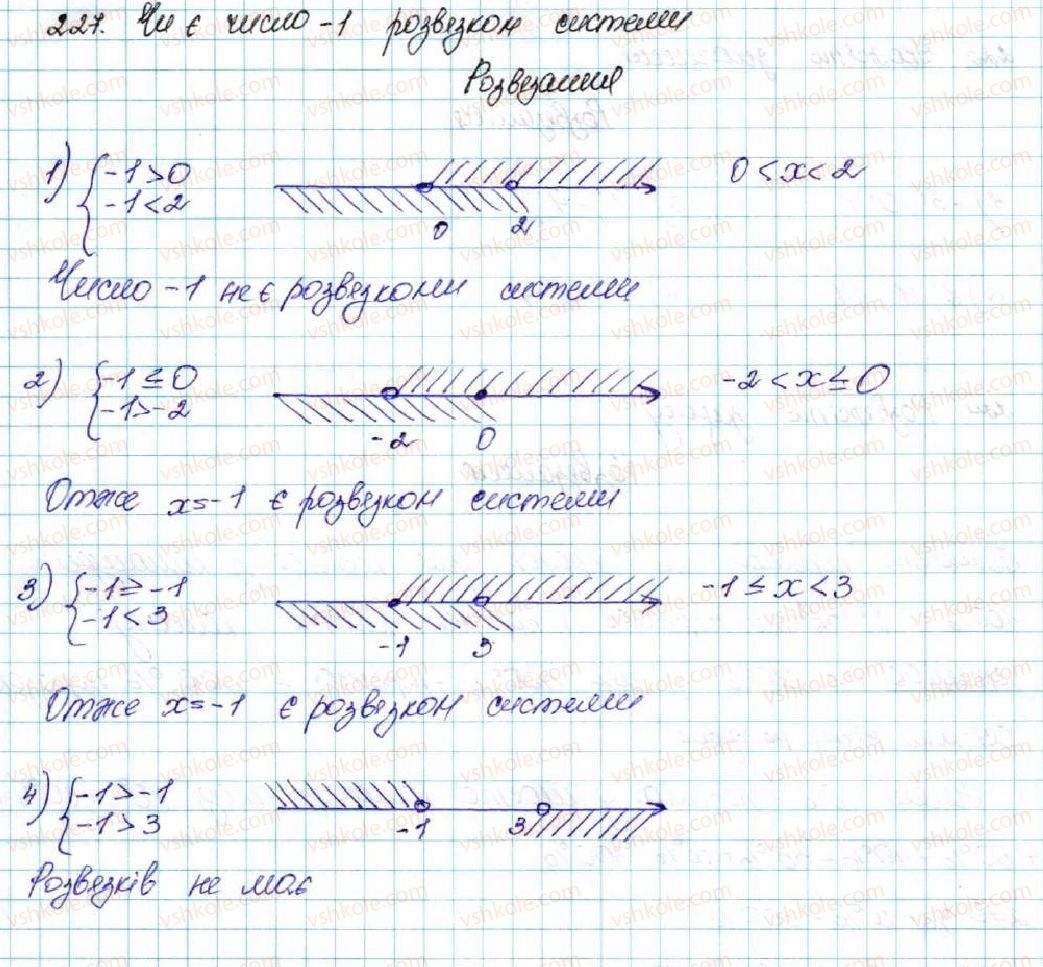 227. Чи є число -1 розвязком системи
Розвезання
1) { -1 > 0
-1 < 2
0 2
0 < x < 2
Число -1 не є розвязкоми системи
2) { -1 ≤ 0
-1 > -2
-2 0
-2 < x ≤ 0
Отже x = -1 є розвязком системи
3) { -1 ≥ -1
-1 < 3
-1 3
-1 ≤ x < 3
Отже x = -1 є розвязком системи
4) { -1 > -1
-1 > 3
-1 3
Розвязків не має